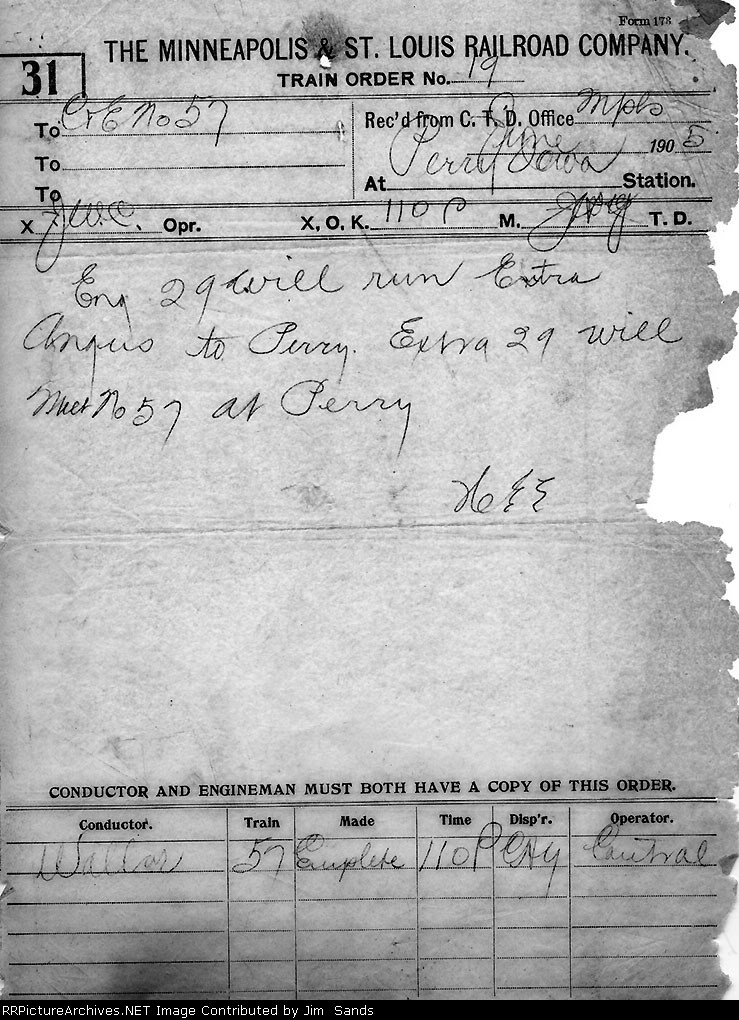 Form 173
31
THE MINNEAPOLIS & ST. LOUIS RAILROAD COMPANY.
TRAIN ORDER No. 19
To C & E No 57
To
To
Rec'd from C. T. D. Office Mpls
June 1905
At Perry Iowa Station.
X J.W.C. Opr. X, O. K. 110 P M. T. D.
Eng 29 will run Extra
Angus to Perry. Extra 29 will
Meet No 57 at Perry
CONDUCTOR AND ENGINEMAN MUST BOTH HAVE A COPY OF THIS ORDER.
Conductor. Train Made Time Disp'r. Operator.
57 Complete 110P
RRPictureArchives.NET Image Contributed by Jim Sands